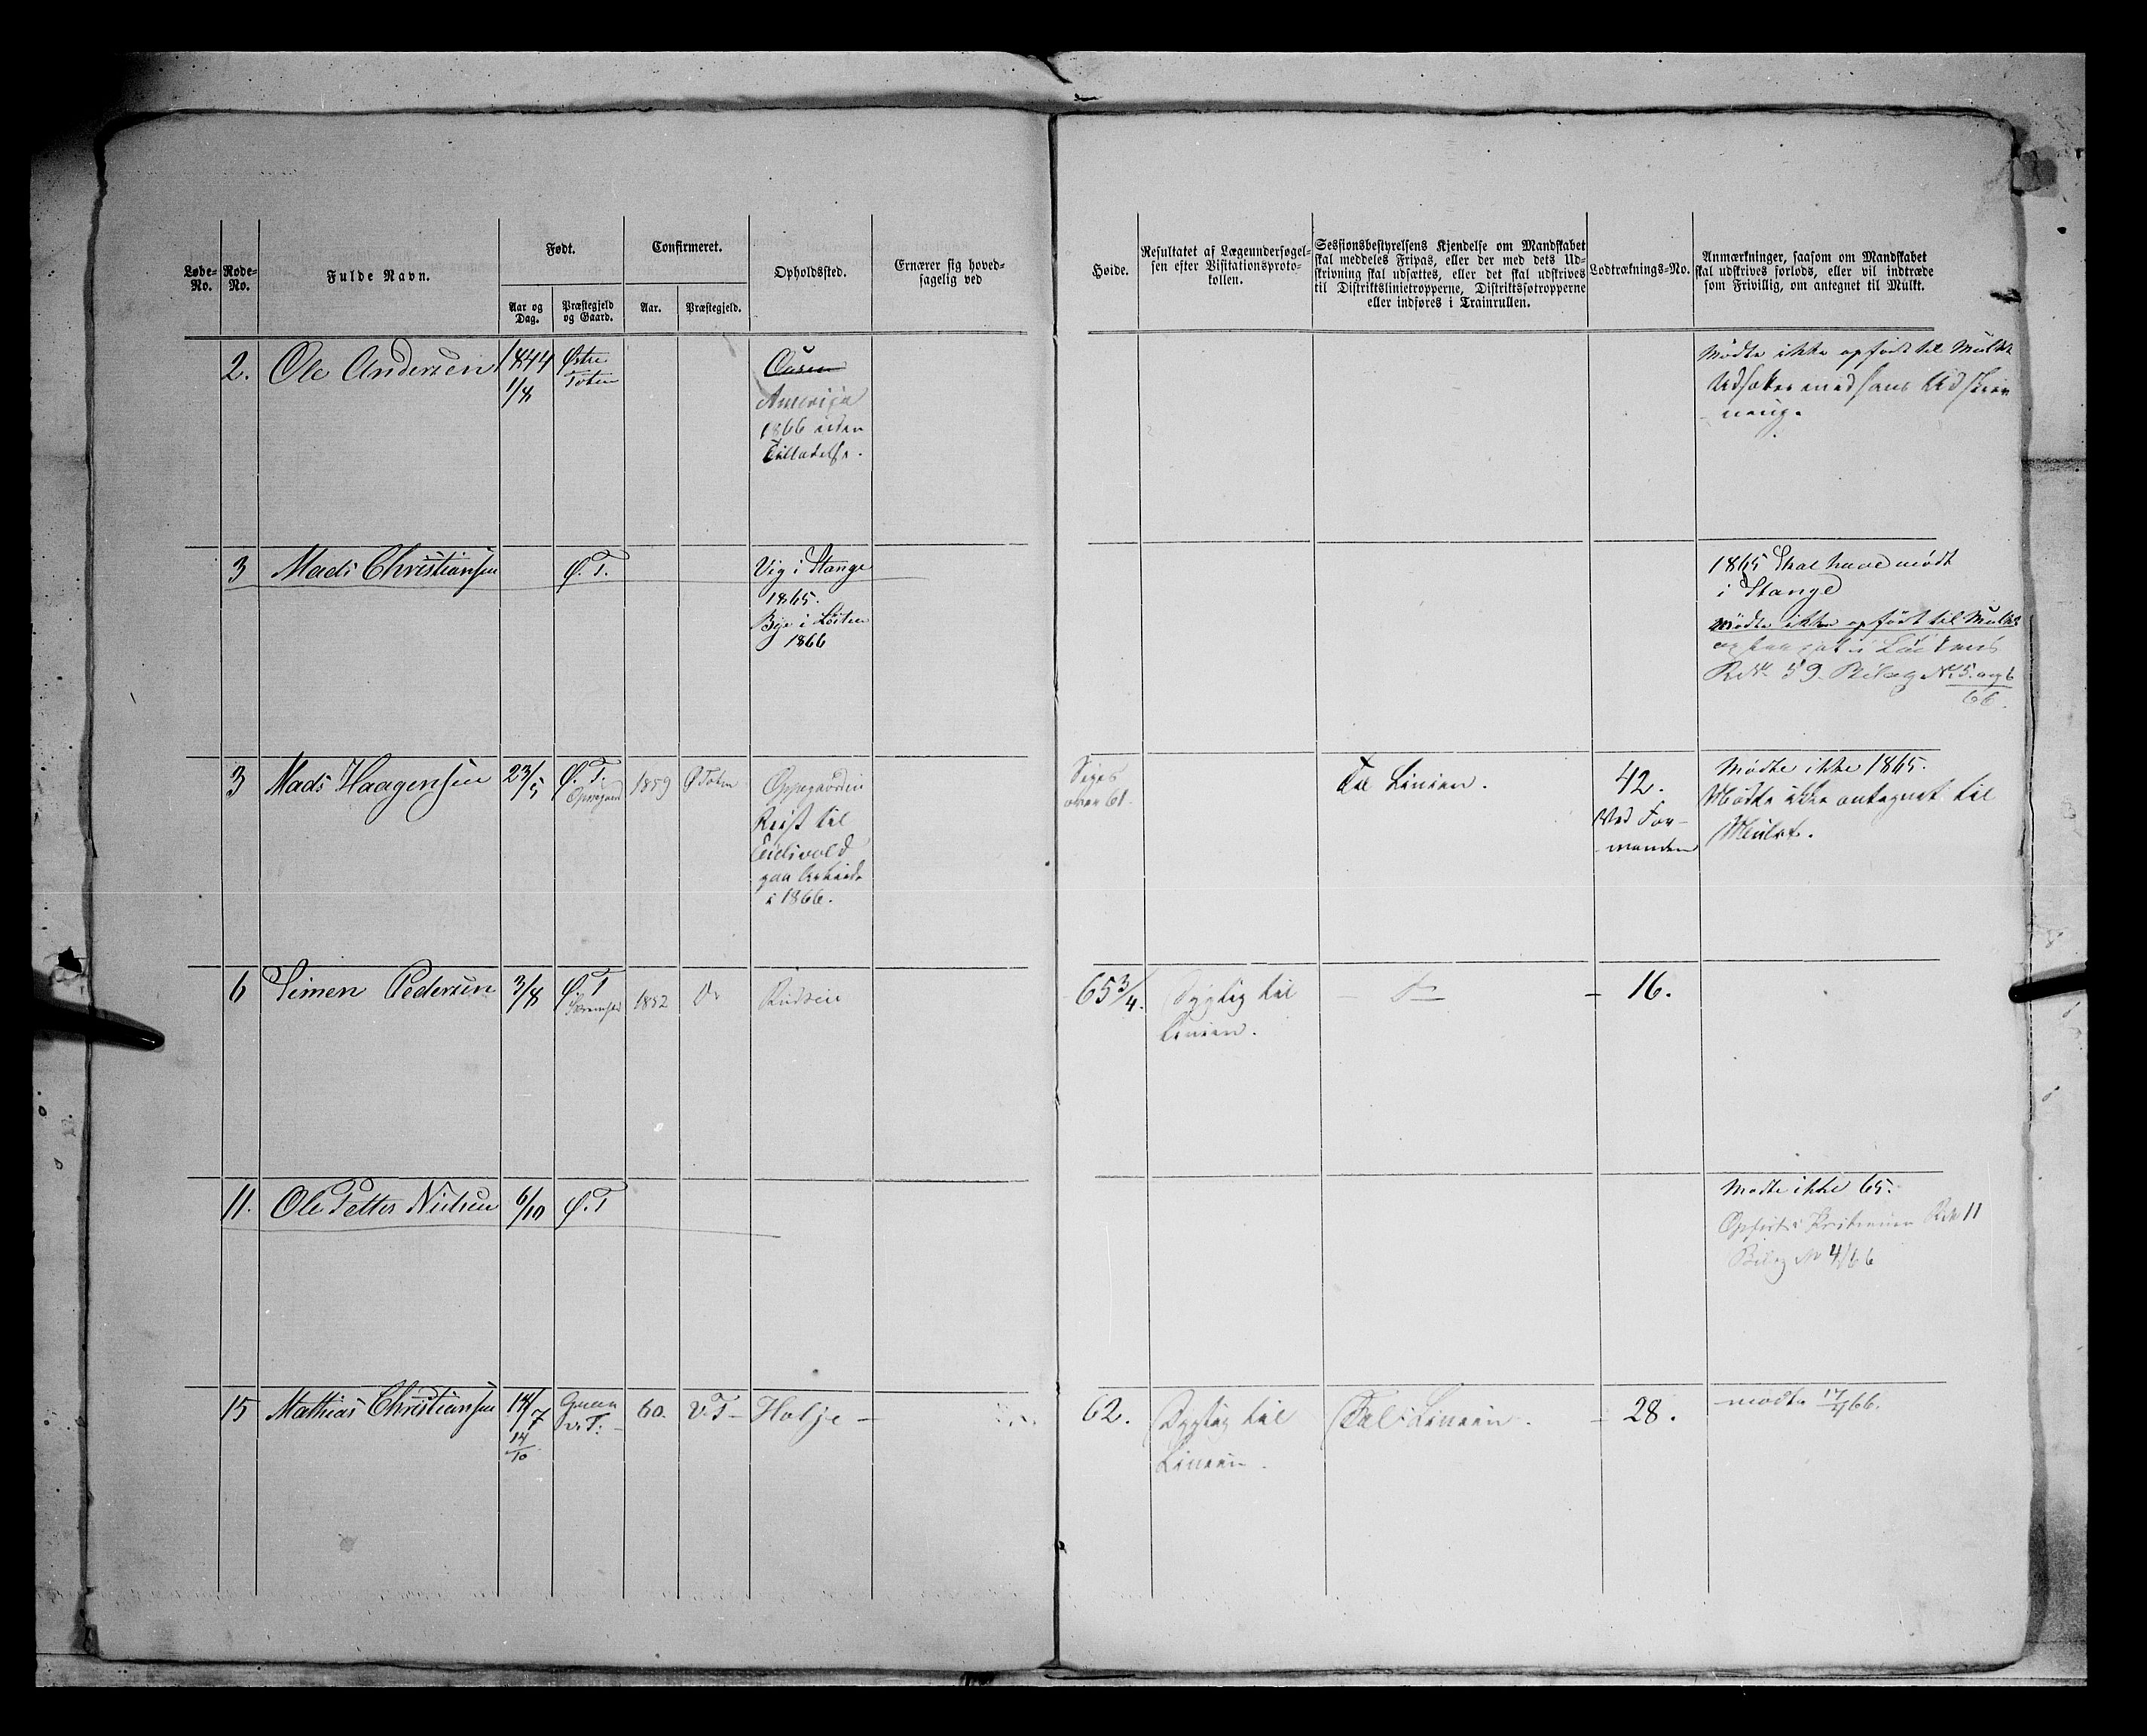 Løbe-No.
Rode-No.
Fulde Navn.
Født.
Aar og Dag.
Præstegjeld og Gaard.
Confirmeret.
Aar.
Præstegjeld.
Opholdssted.
Ernærer sig hoved-
sagelig ved
Høide.
Resultatet af Lægeundersøgel-
sen efter Visitationsproto-
kollen.
Sessionsbestyrelsens Kjendelse om Mandskabet
skal meddeles Fripas, eller der med dets Ud-
skrivning skal udsættes, eller det skal udskrives
til Distriktslinietropperne, Distriktsfotropperne
eller indføres i Trainrullen.
Lodtræknings-No.
Anmærkninger, saasom om Mandskabet
skal udskrives forlods, eller vil indtræde
som Frivillig, om antegnet til Mulkt.
2. Ole Andersen 1844 Østre
1/8 Toten
Amerika
1866 uden
Tilladelse.
Mødte ikke opført til Mulkt
Udsættes med hans Udskriv
ning.
3 Mads Christiansen Ø. T. Vig i Stange
1865.
Bye i Löiten
1866
1865 Skal have mødt
i Stange
Mødte ikke opført til Mulkt
59 Bilag No 5 og 6
66.
3 Mads Haagensen 23/5 Ø. T. 1859 Ø Toten Oppegaardeie
Reist til
Eidsvold
paa Arbeide
i 1866.
Siges
over 61.
Til Linien. 42.
Ved For-
manden
Mødte ikke 1865.
Mødte ikke antegnet til
Mulkt.
6 Simen Pedersen 3/8 Ø. T 1852 Do
65 3/4. Dygtig til
Linien.
Do 16.
11. Ole Petter Nielsen 6/10 Ø. T
Mødte ikke 65.
Opført i Kristiania Rde 11
Bilag No 4/66
15 Mathias Christiansen 14/7 V. T. 60. V. T Holje
14/10
62. Dygtig til
Linien.
Til Linien. 28. mødte 17/4 66.